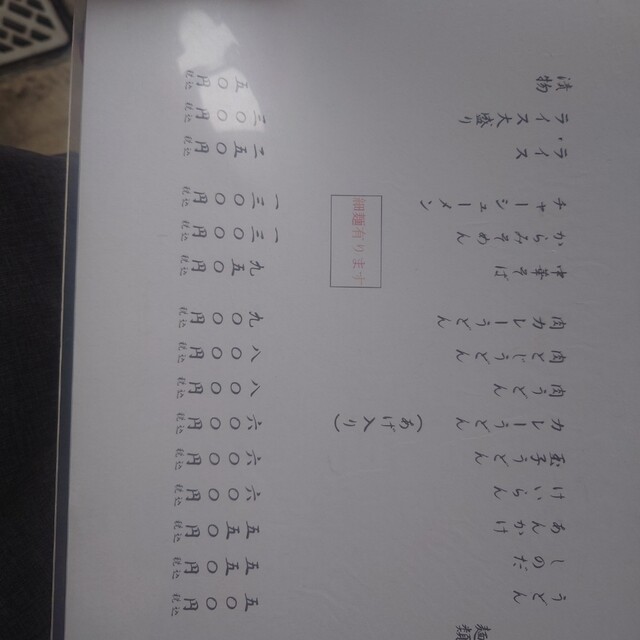 麺類
うどん 五〇〇円 税込
しのだ 五五〇円 税込
あんかけ 五五〇円 税込
けいらん 六〇〇円 税込
玉子うどん 六〇〇円 税込
カレーうどん (あげ入り) 六〇〇円 税込
肉うどん 八〇〇円 税込
肉とじうどん 八〇〇円 税込
肉カレーうどん 九〇〇円 税込
中華そば 九五〇円 税込
細麺有ります
からみそめん 一三〇〇円 税込
チャーシューメン 一三〇〇円 税込
・ライス 二五〇円 税込
ライス大盛り 三〇〇円 税込
漬物 五〇円 税込